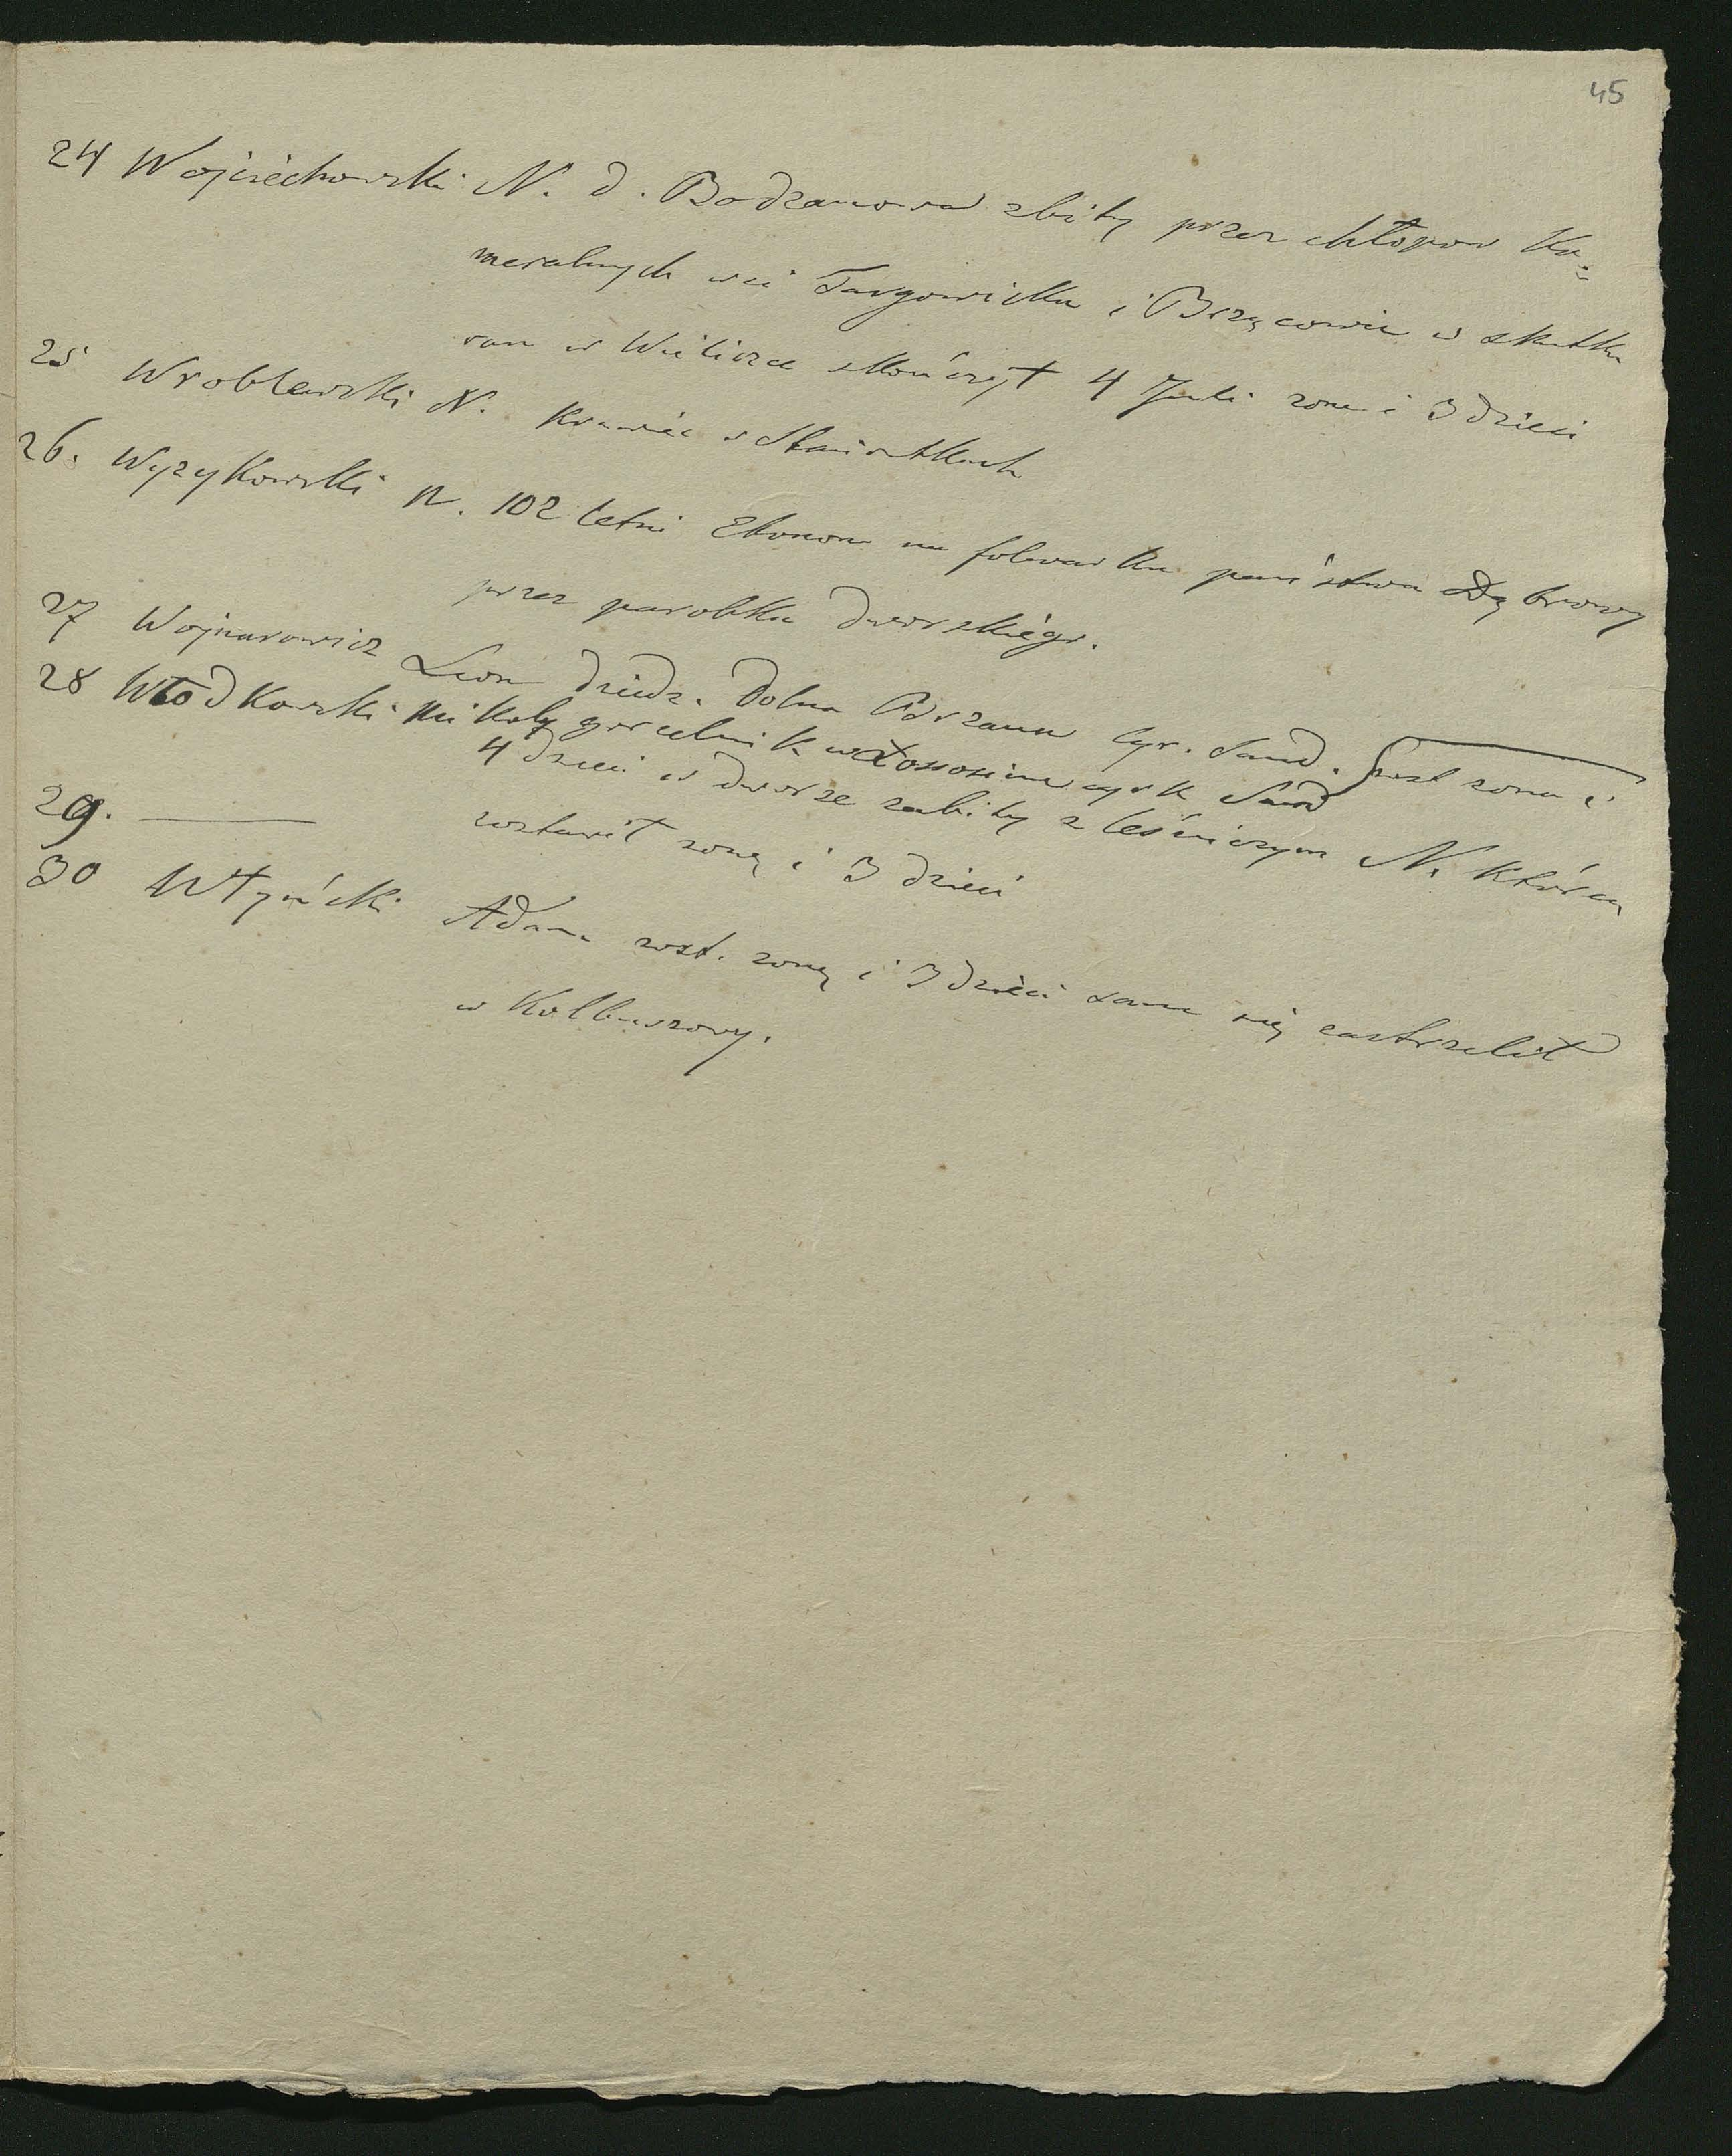 45
24 Wojciechowski N. d. Bodzanowa zbity przez chłopow Ka=
meralnych wsi Targowicka i Brzączowic w skutku
ran w Wieliczce skończył 4 Juli zona i 3 dzieci
25 Wroblewski N. Krawiec w Staniatkach
26. Wyzykowski N. 102 letni Ekonom na folwarku państwa Dąbrowy
przez parobka dworskiego.
27 Wojnarowicz Leon dziedz. Dolna cyr. Sand. zost zona i
4 dzieci
28 Włodkowski Mikołaj gorzelnik w Łososinie cyrk Sand
w dworze zabity z leśniczym N. który
zostawił zonę i 3 dzieci
29. ———
30 Adam zost. zonę i 3 dzieci sam się zastrzelił
w Kolbuszowy.